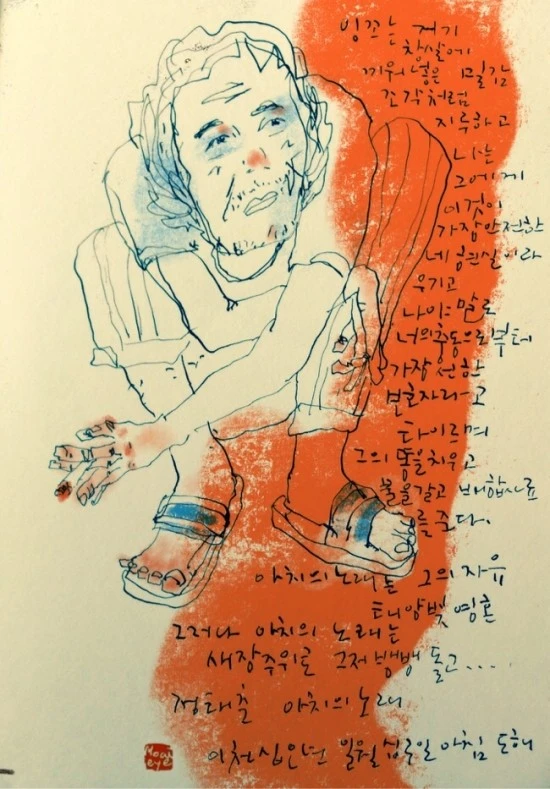 잉꼬는 거기
창살에
끼워 넣은 밀감
조각처럼
지루하고
나는
그에게
이것이
가장 안전한
네 현실이라
우기고
나야말로
너의 충동으로부터
가장 선한
보호자라고
타이르며
그의 똥을 치우고
물을 갈고 배합사료
를 준다.
아치의 노래는 그의 자유
태양빛 영혼
그러나 아치의 노래는
새장 주위로 그저 뱅뱅 돌고....
정태춘 아치의 노래
일월 아침 도해